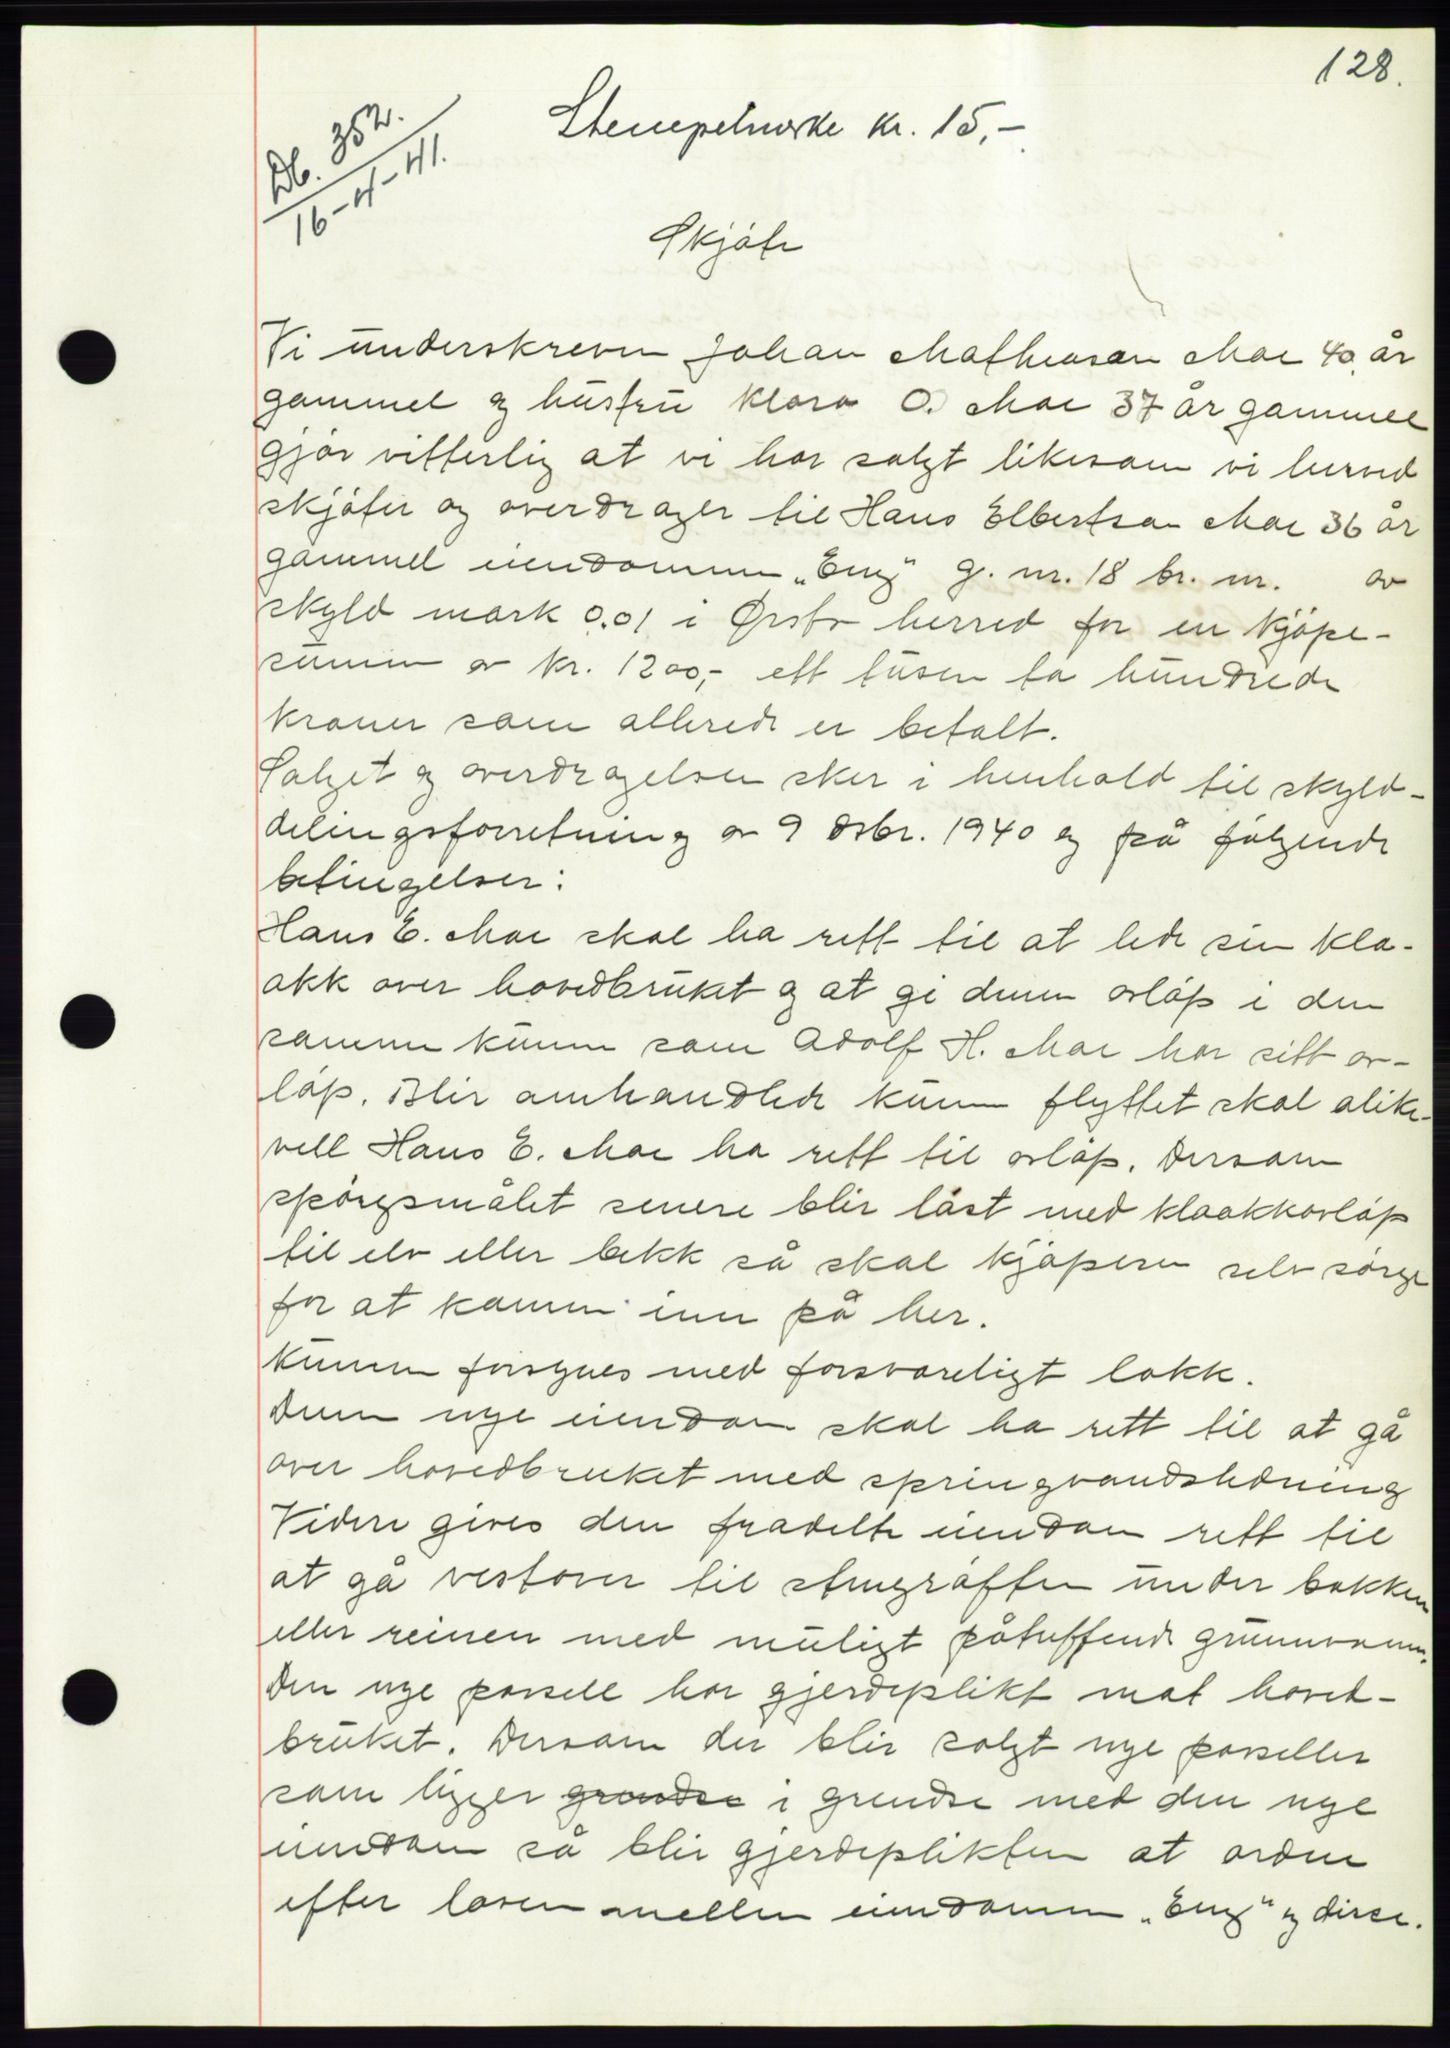 128.
Stempelmerke kr. 15,-
Db. 352.
16-4-41.
Skjøte
Vi underskrevne Johan Matheusen Moe 40 år
gammel og hustru Klara O. Moe 37 år gammel
gjør vitterlig at vi har solgt likesom vi herved
skjøter og overdrager til Hans Elbertsen Moe 36 år
gammel eiendommen „Eng" g. nr. 18 br. nr. av
skyld mark 0.01 i Ørsta herred for en kjøpe-
summ av kr. 1200,- ett tusen to hundrede
kroner som allerede er betalt.
Salget og overdragelsen sker i henhold til skyld-
delingsforretning av 9 dsbr. 1940 og på følgende
betingelser:
Hans E. Moe skal ha rett til at lede sin klo-
akk over hovedbruket og at gi denne avløp i den
samme kumm som Adolf H. Moe har sitt av-
løp. Blir omhandlede kumm flyttet skal alike-
vell Hans E. Moe ha rett til avløp. Dersom
spørgsmålet senere blir løst med kloakkavløp
til elv eller bekk så skal kjøperen selv sørge
for at komme inn på her.
Kummen forsynes med forsvareligt lokk.
Denne nye eiendom skal ha rett til at gå
over hovedbruket med springvandsledning
Videre gives den fradelte eiendom rett til
at gå vestover til stengrøften under bakken
eller reinen med muligt påtreffende grunnvann.
Den nye parsell har gjerdeplikt mot hoved-
bruket. Dersom der blir solgt nye parseller
som ligger grendse i grendse med den nye
eiendom så blir gjerdeplikten at ordne
efter loven mellem eiendommen „Eng" og disse.